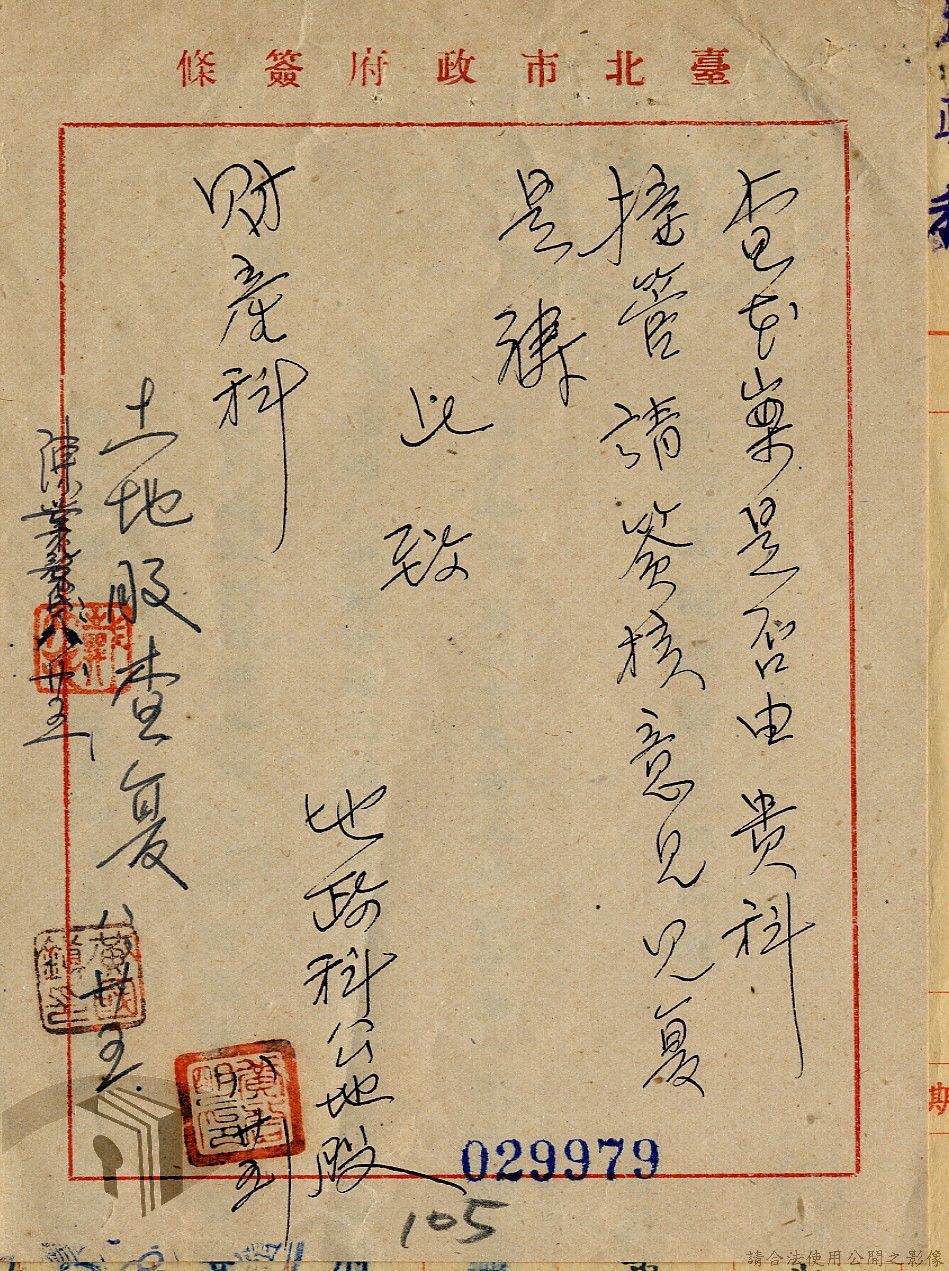 臺北市政府簽條
查本案是否由貴科
接管請簽核意見見复
是禱
此致
財產科
地政科公地股
八廿五
土地股查复
八廿五
陳業
八廿五
黃國鎮印
029979
105
期
請合法使用公開之影像